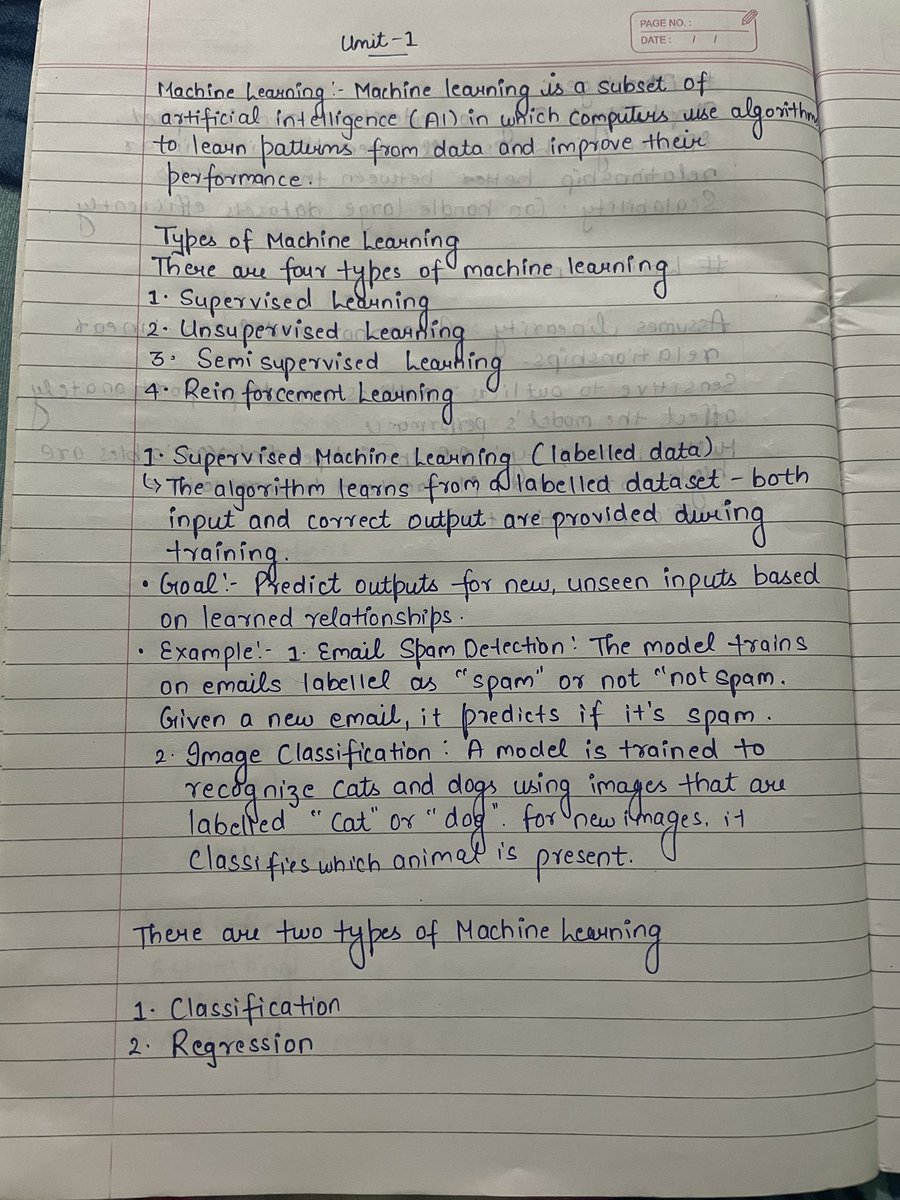 Unit-1
PAGE NO. :
DATE : / /
Machine Learning :- Machine learning is a subset of
artificial intelligence (AI) in which computers use algorithm
to learn patterns from data and improve their
performance.
Types of Machine Learning
There are four types of machine learning
1. Supervised Learning
2. Unsupervised Learning
3. Semi supervised Learning
4. Rein forcement Learning
1. Supervised Machine Learning (labelled data)
↳ The algorithm learns from a labelled dataset - both
input and correct output are provided during
training.
• Goal :- Predict outputs for new, unseen inputs based
on learned relationships.
• Example :- 1. Email Spam Detection : The model trains
on emails labellel as "spam" or not "not spam.
Given a new email, it predicts if it's spam.
2. Image Classification : A model is trained to
recognize cats and dogs using images that are
labelled "cat" or "dog". for new images. it
classifies which animal is present.
There are two types of Machine Learning
1. Classification
2. Regression